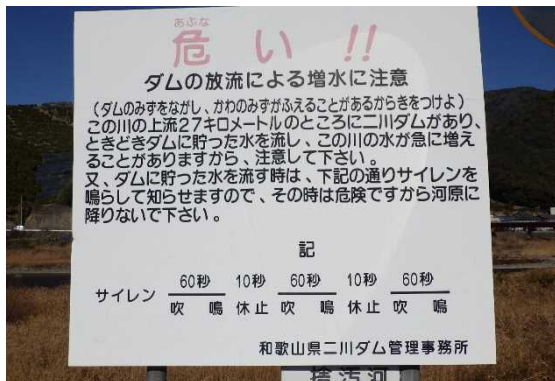 あぶな
危い!!
ダムの放流による増水に注意
(ダムのみずをながし、かわのみずがふえることがあるからきをつけよ)
この川の上流27キロメートルのところに二川ダムがあり、
ときどきダムに貯った水を流し、この川の水が急に増え
ることがありますから、注意して下さい。
又、ダムに貯った水を流す時は、下記の通りサイレンを
鳴らして知らせますので、その時は危険ですから河原に
降りないで下さい。
記
60秒 10秒 60秒 10秒 60秒
サイレン
吹鳴 休止 吹鳴 休止 吹鳴
和歌山県二川ダム管理事務所
捨汚河